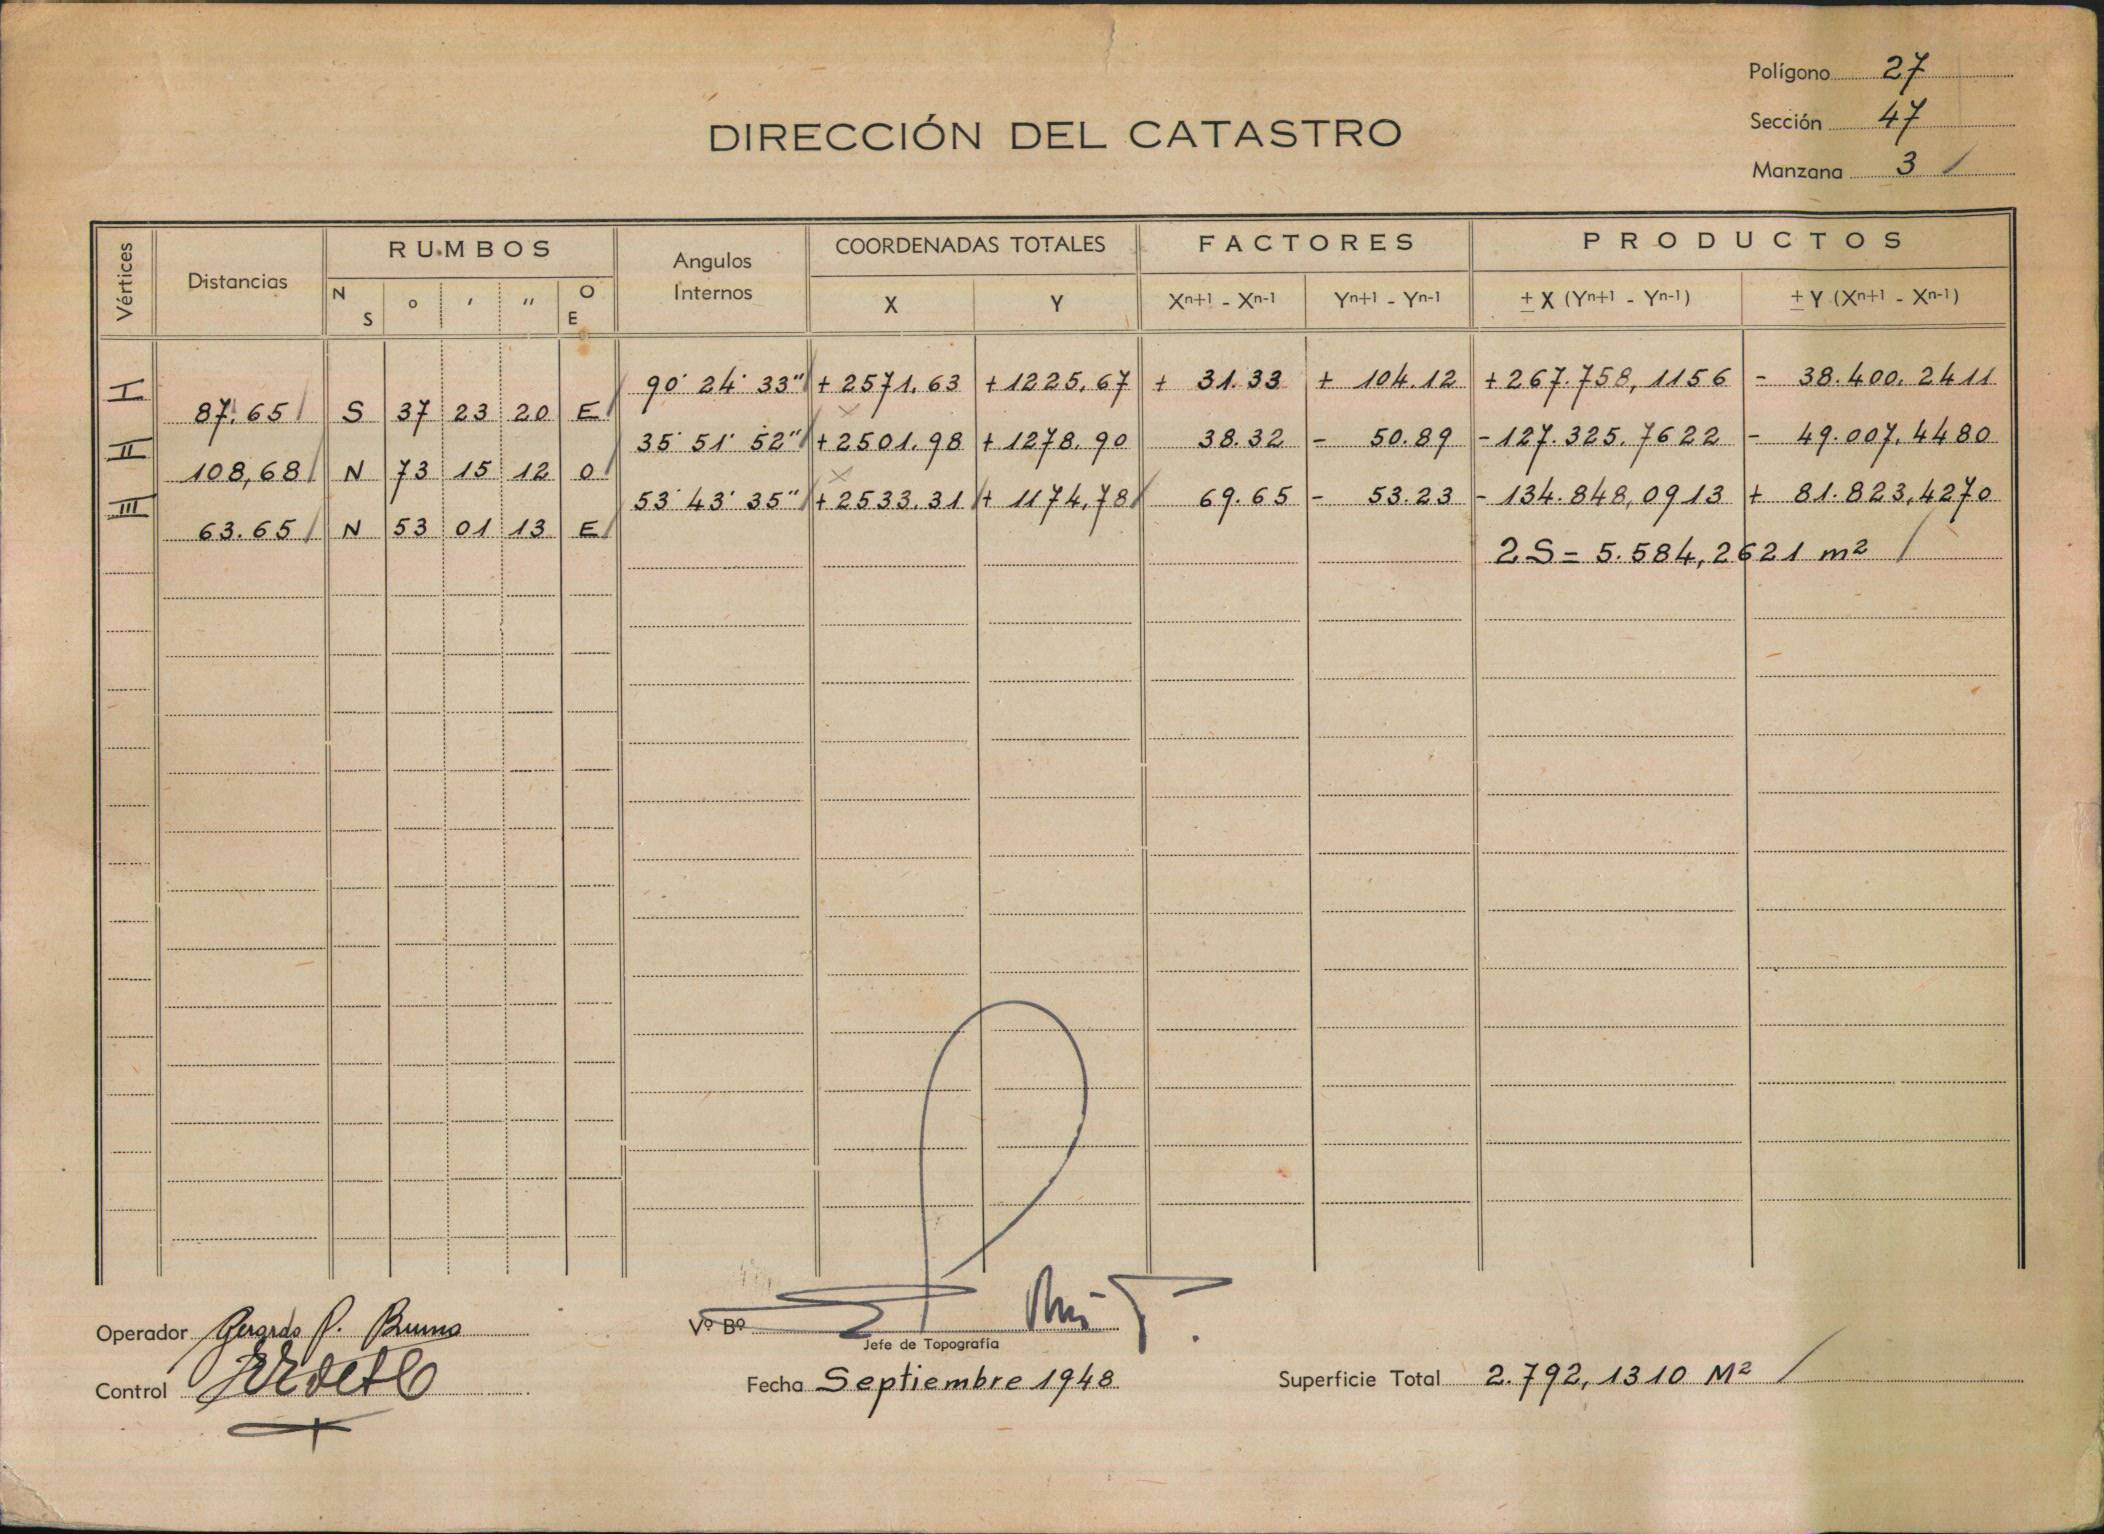 Polígono 27
Sección 47
Manzana 3
DIRECCIÓN DEL CATASTRO
Vértices Distancias RUMBOS Angulos Internos COORDENADAS TOTALES FACTORES PRODUCTOS
N S o ' '' O E X Y Xn+1 - Xn-1 Yn+1 - Yn-1 ± X (Yn+1 - Yn-1) ± Y (Xn+1 - Xn-1)
I 90° 24' 33" + 2571,63 + 1225,67 + 31.33 + 104.12 + 267.758,1156 - 38.400,2411
87,65 S 37 23 20 E
II 35° 51' 52" + 2501,98 + 1278,90 38.32 - 50.89 - 127.325,7622 - 49.007,4480
108,68 N 73 15 12 O
III 53° 43' 35" + 2533,31 + 1174,78 69.65 - 53.23 - 134.848,0913 + 81.823,4270
63.65 N 53 01 13 E
2S = 5.584,2621 m2
Operador Gerardo P. Bruno
Vº Bº
Jefe de Topografía
Control
Fecha Septiembre 1948
Superficie Total 2.792,1310 M2